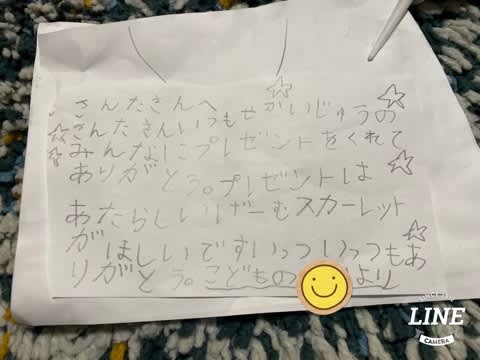 さんたさんへ
さんたさんいつもせかいじゅうの
みんなにプレゼントをくれて
ありがとう。プレゼントは
あたらしいげーむスカーレット
がほしいですいっついっつもあ
りがとう。こどもの
より
LINE
CAMERA